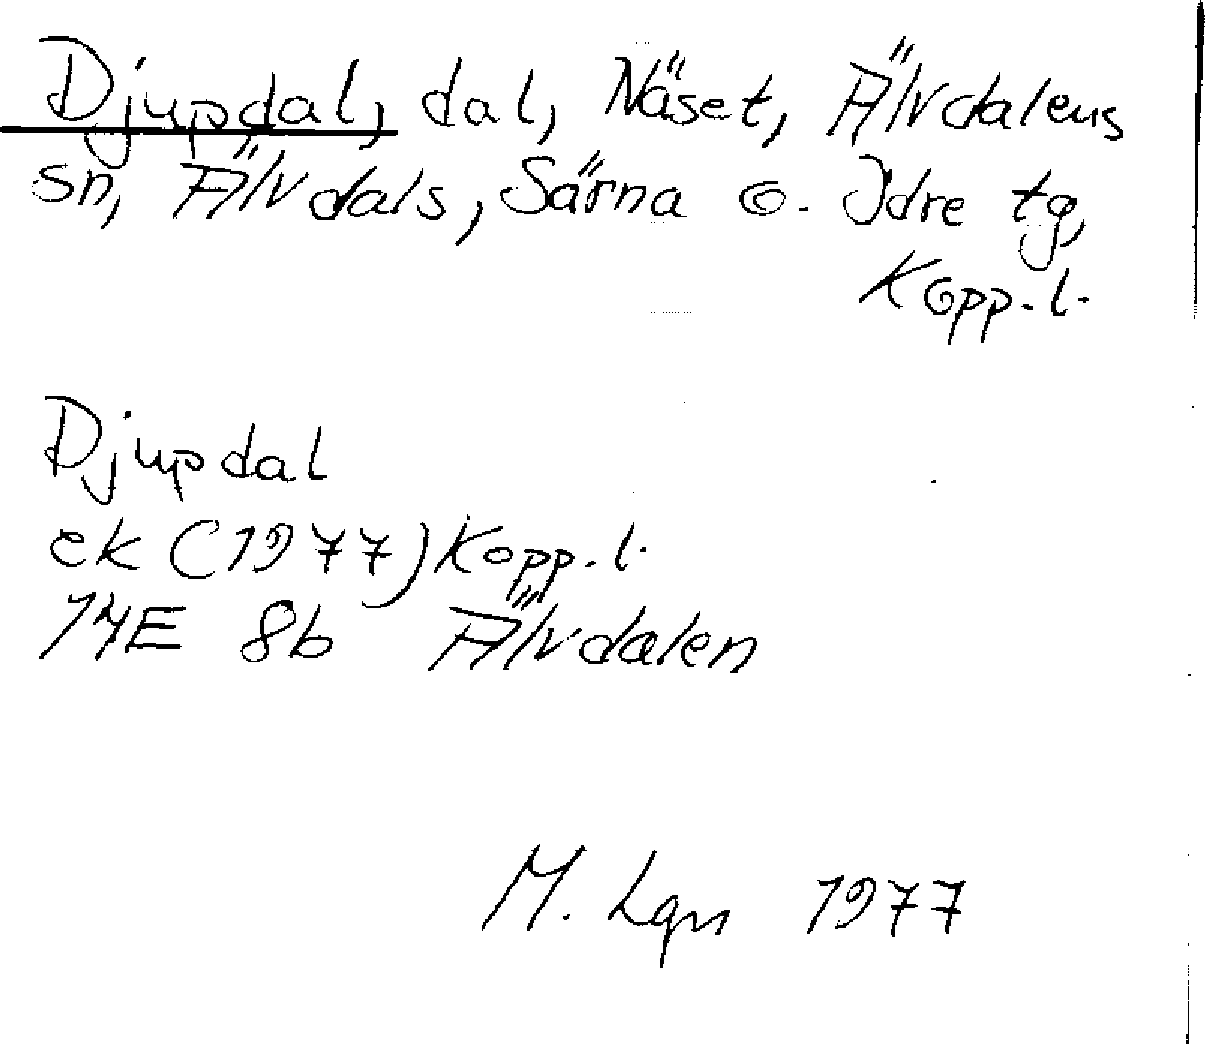 Djupdal, dal, Näset, Älvdalens
sn, Älvdals, Särna o. Idre tg,
Kopp. l.
Djupdal
ek (1977) Kopp. l.
14E 8b Älvdalen
M. Lgn 1977